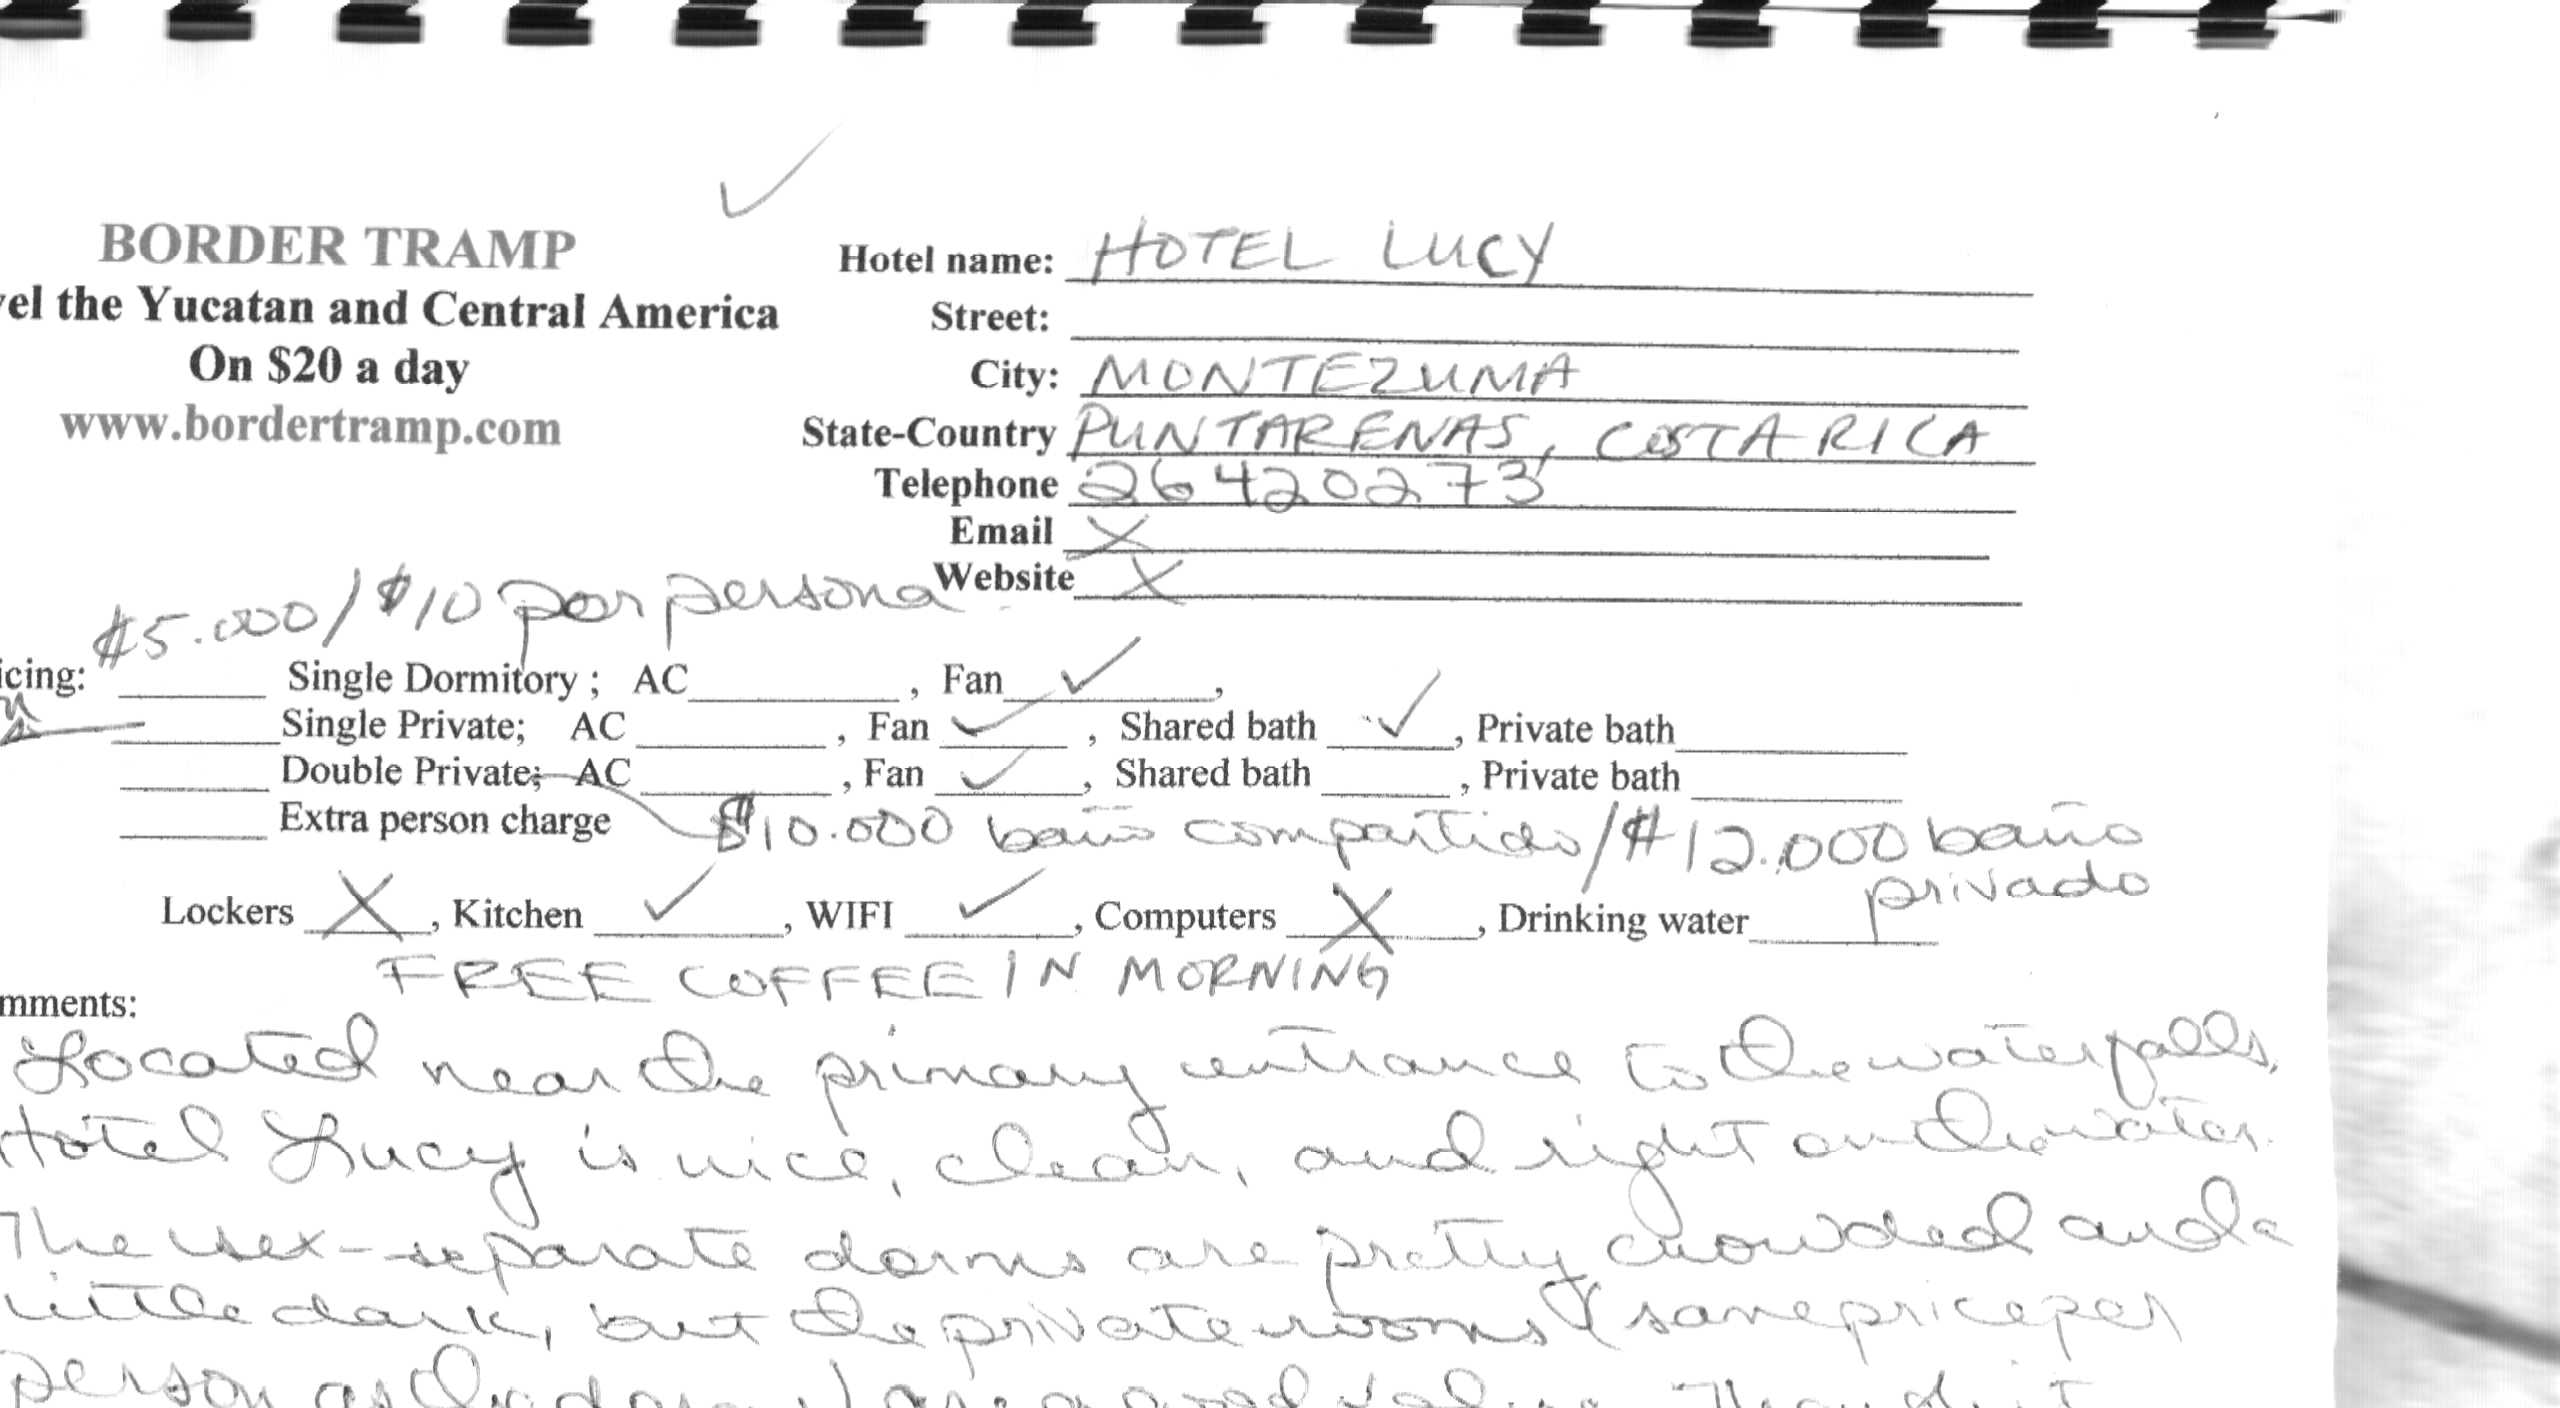 BORDER TRAMP
vel the Yucatan and Central America
On $20 a day
www.bordertramp.com
Hotel name: HOTEL LUCY
Street:
City: MONTEZUMA
State-Country PUNTARENAS, COSTA RICA
Telephone 26420273
Email X
Website X
₡5.000/$10 por persona
icing: Single Dormitory ; AC , Fan ✓,
Single Private; AC , Fan ✓ , Shared bath ✓, Private bath
Double Private; AC , Fan ✓, Shared bath , Private bath
Extra person charge ₡10.000 baño compartido/₡12.000 baño privado
Lockers X, Kitchen ✓, WIFI ✓, Computers X, Drinking water
FREE COFFEE IN MORNING
mments:
Located near the primary entrance to the waterfalls,
Hotel Lucy is nice, clean, and right on the water.
The sex-separate dorms are pretty crowded and a
little dark, but the private rooms (same price per
person as the dorm) are a good value.